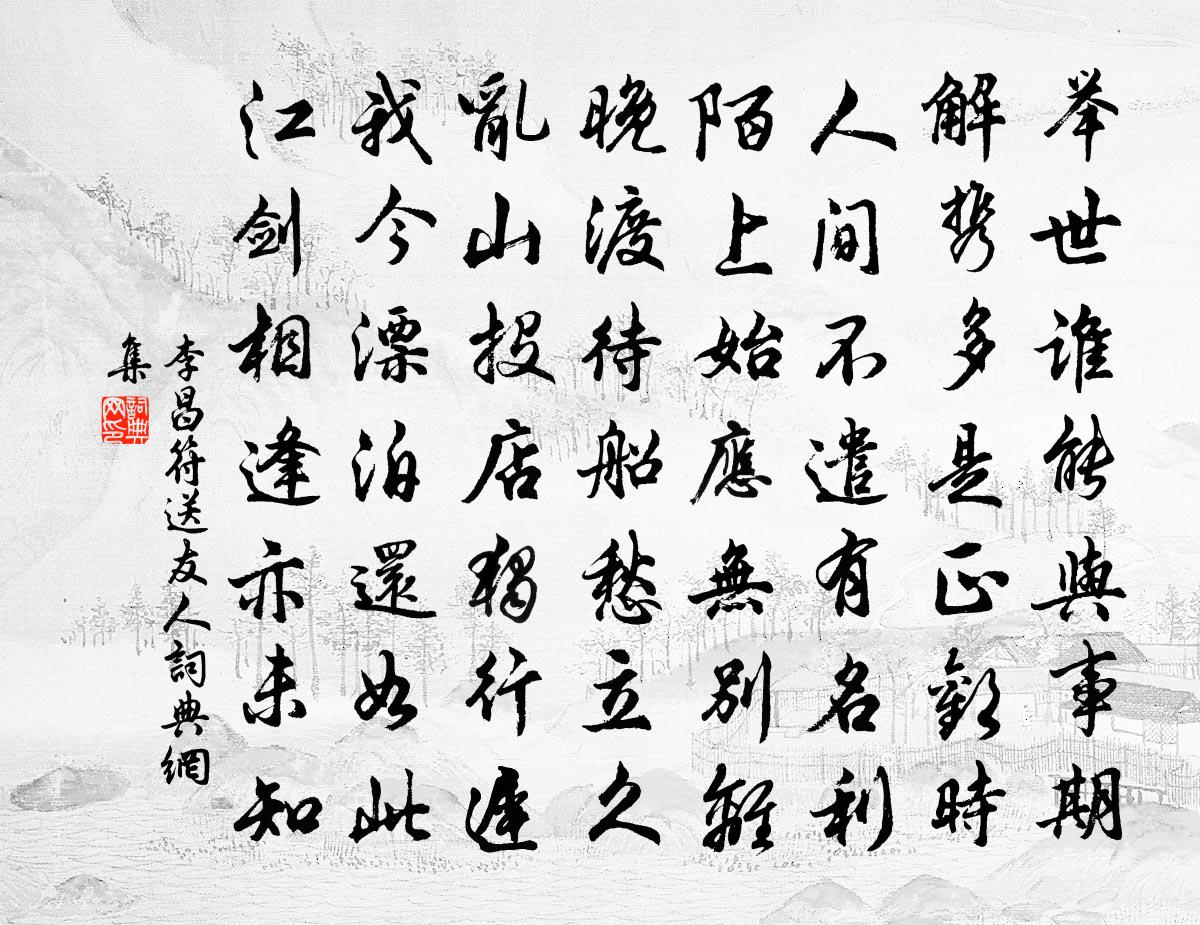 举世谁能與事期
解携多是正歡時
人间不遣有名利
陌上始應無別離
晚渡待船愁立久
亂山投店独行遲
我今漂泊還如此
江剑相逢亦未知
李昌符送友人詞典網
集
詞典
网印